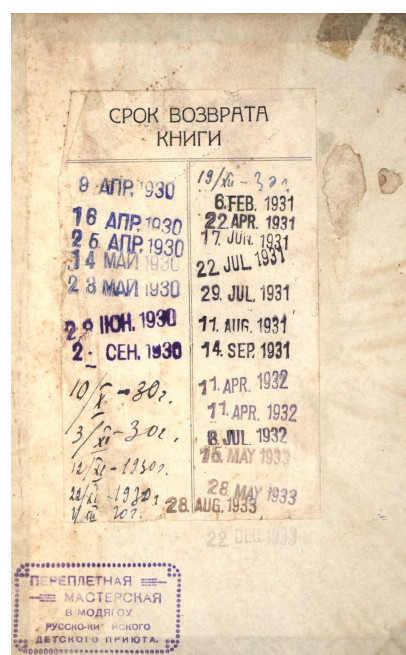 СРОК ВОЗВРАТА
КНИГИ
9 АПР. 1930
16 АПР. 1930
26 АПР. 1930
14 МАЙ 1930
28 МАЙ 1930
ИЮН. 1930
2 · СЕН. 1930
10/X - 30г.
3/XI - 30г.
12/XI - 1930г.
22/XI - 1930г.
19/XII - 30г.
6. FEB. 1931
22 APR. 1931
17 JUN. 1931
22 JUL. 1931
29. JUL. 1931
11. AUG. 1931
14. SEP. 1931
11. APR. 1932
11. APR. 1932
8. JUL. 1932
MAY 1933
28 MAY 1933
28. AUG. 1933
22 DEC 1933
ПЕРЕПЛЕТНАЯ
МАСТЕРСКАЯ
В МОДЯГОУ
РУССКО-КИТ ЙСКОГО
ДЕТСКОГО ПРИЮТА.